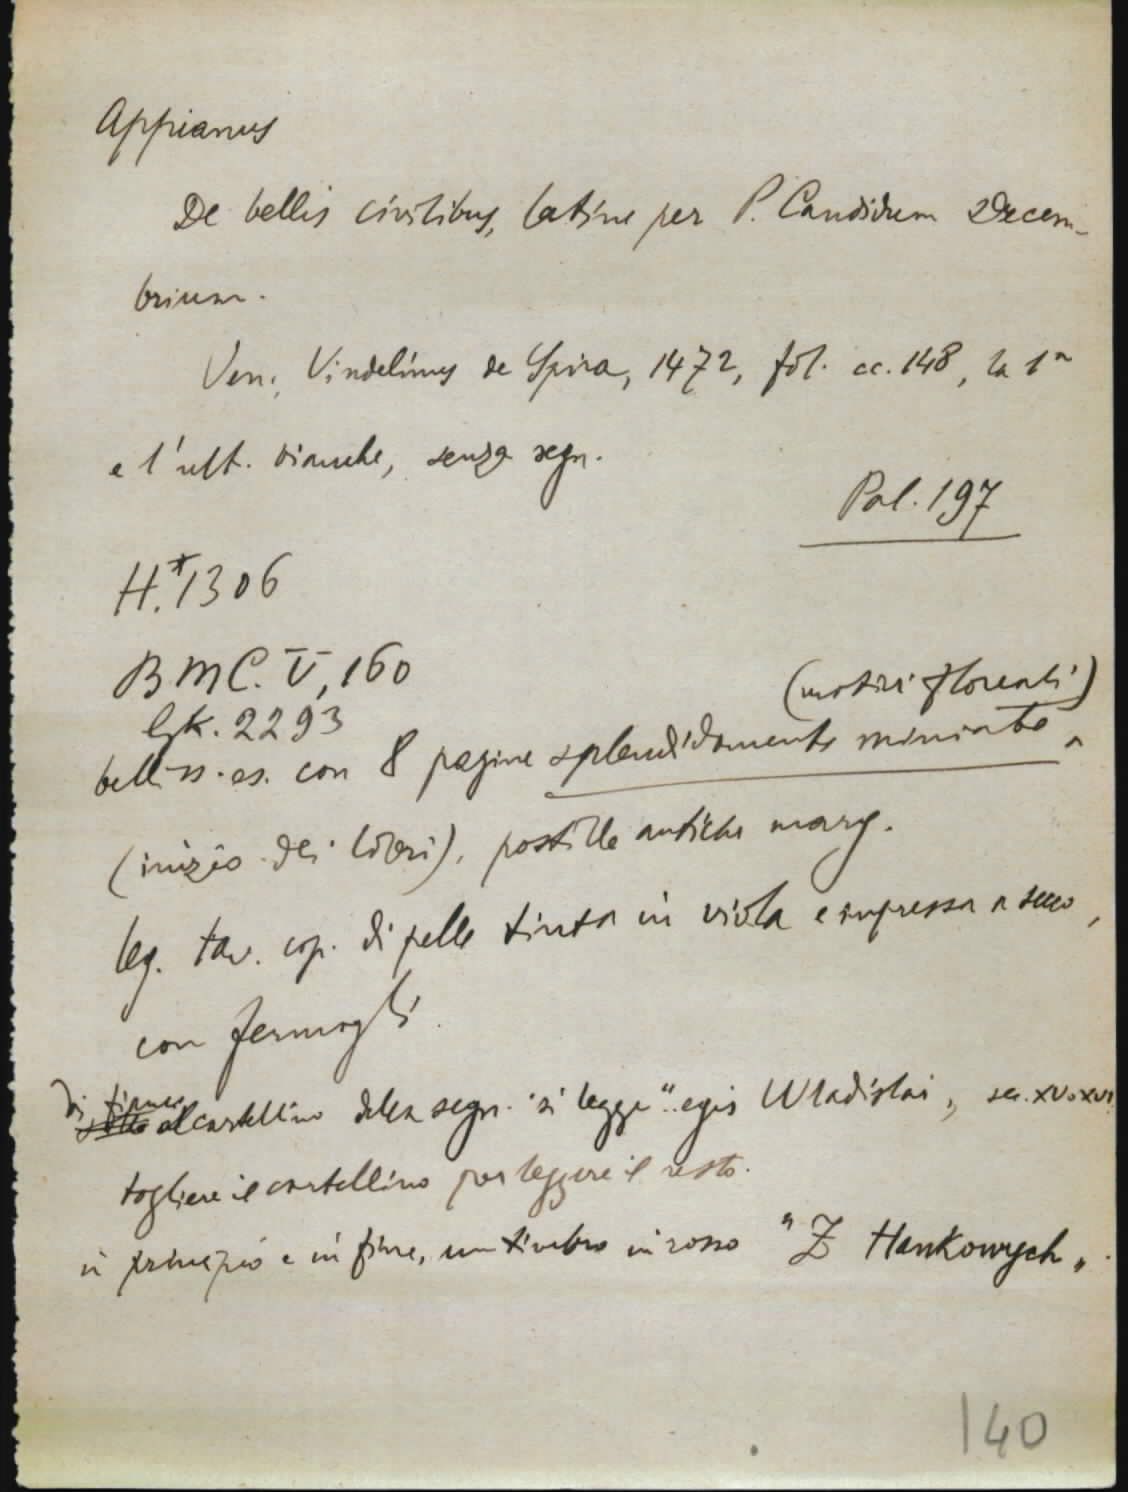 Appianus
De bellis civilibus, latine per P. Candidum Decem-
brium.
Ven., Vindelinus de Spira, 1472, fol. cc. 148, la 1ª
e l'ult. bianche, senza segn.
Pal. 197
H.*1306
BMC. V, 160
Gk. 2293
(motivi floreali)
belliss. es. con 8 pagine splendidamente miniate ^
(inizio dei libri), postille antiche marg.
leg. tav. cop. di pelle tinta in viola e impressa a secco,
con fermagli
Di fianco
sotto al cartellino della segn. si legge "..egis Wladislai", sec. XV o XVI
togliere il cartellino per leggere il resto.
in principio e in fine, un timbro in rosso "Z Hankowych".
140